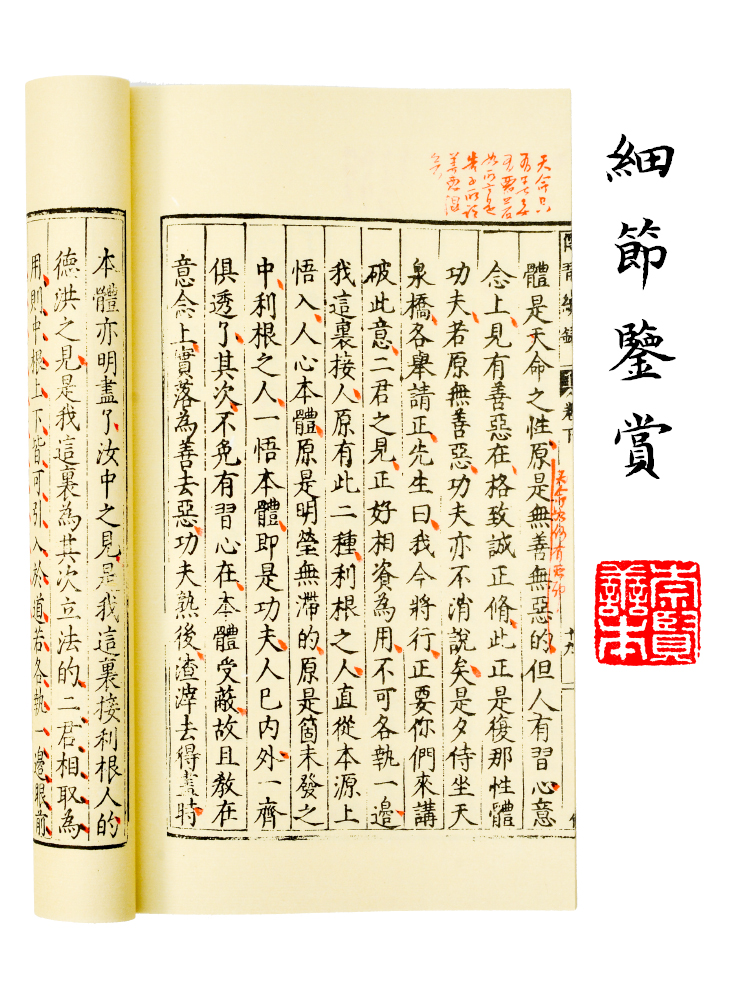 細節鑒賞
崇賢善本
卷下
體是天命之性原是無善無惡的但人有習心意
念上見有善惡在格致誠正脩此正是復那性體
功夫若原無善惡功夫亦不消說矣是夕侍坐天
泉橋各舉請正先生曰我今將行正要你們來講
破此意二君之見正好相資為用不可各執一邊
我這裏接人原有此二種利根之人直從本源上
悟入人心本體原是明瑩無滯的原是箇未發之
中利根之人一悟本體即是功夫人已內外一齊
俱透了其次不免有習心在本體受蔽故且教在
意念上實落為善去惡功夫熟後渣滓去得盡時
本體亦明盡了汝中之見是我這裏接利根人的
德洪之見是我這裏為其次立法的二君相取為
用則中根上下皆可引入於道若各執一邊眼前